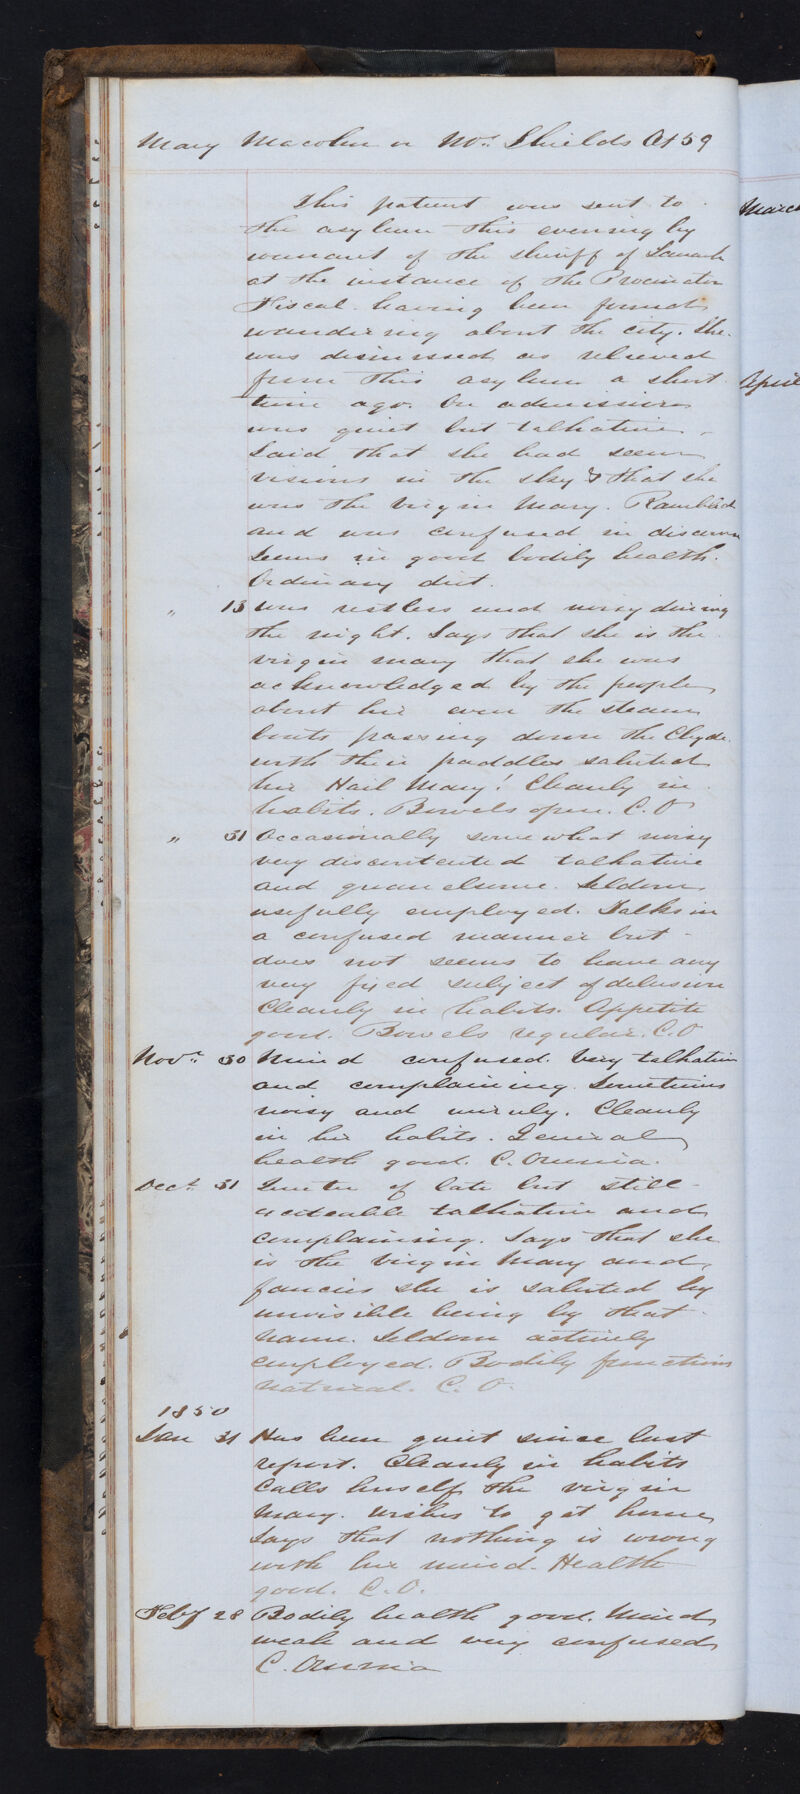 Mary Macolm or Mrs. Shields Æt 59
This patient was sent to
the asylum this evening by
warrant of the sheriff of Lanark
at the instance of the Procurator
Fiscal. having been found
wandering about the city. She
was dismissed as relieved
from this asylum a short
time ago. On admission
was quiet but talkative.
Said that she had seen
visions in the sky & that she
was the virgin Mary. Rambled
and was confused in discourse
Seems in good bodily health.
Ordinary diet.
" 13 Was restless and noisy during
the night. Says that she is the
virgin mary that she was
acknowledged by the people
about her even the steam
boats passing down the Clyde
with their paddles saluted
her Hail Mary! Cleanly in
habits. Bowels open. C. O
" 31 Occasionally somewhat noisy
very discontented talkative
and quarrelsome. Seldom
usefully employed. Talks in
a confused manner but
does not seems to have any
very fixed subject of delusion
Cleanly in habits. Appetite
good. Bowels regular. C. O
Novr. 30 Mind confused. Very talkative
and complaining. Sometimes
noisy and unruly. Cleanly
in her habits. General
health good. C. Omnia.
Decr. 31 Quieter of late but still
talkative and
complaining. Says that she
is the Virgin Mary and
fancies she is saluted by
invisible being by that
name. Seldom actively
employed. Bodily functions
natural. C. O.
1850
Jan 31 Has been quiet since last
report. Cleanly in habits
Calls herself the virgin
Mary. Wishes to get home
Says that nothing is wrong
with her mind. Health
good. C. O.
Feby 28 Bodily health good. Mind
weak and very confused
C. Omnia
March
April